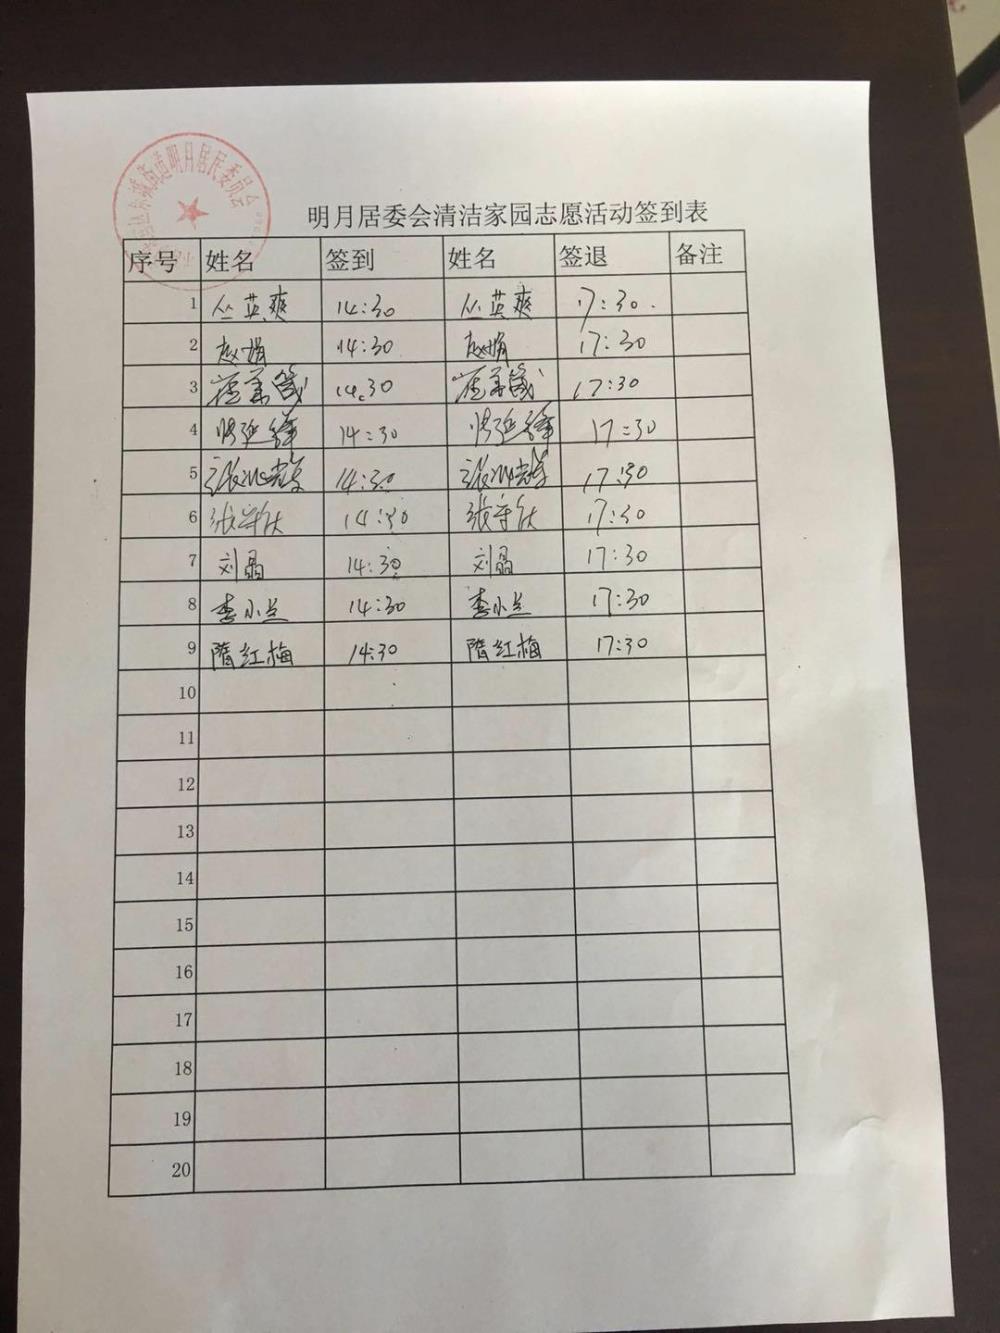 街道明月居民委员会
明月居委会清洁家园志愿活动签到表
序号 姓名 签到 姓名 签退 备注
1 丛英爽 14:30 丛英爽 17:30
2 赵娟 14:30 赵娟 17:30
3 14:30 17:30
4 14:30 17:30
5 14:30 17:30
6 14:30 17:30
7 刘晶 14:30 刘晶 17:30
8 李小兰 14:30 李小兰 17:30
9 隋红梅 14:30 隋红梅 17:30
10
11
12
13
14
15
16
17
18
19
20